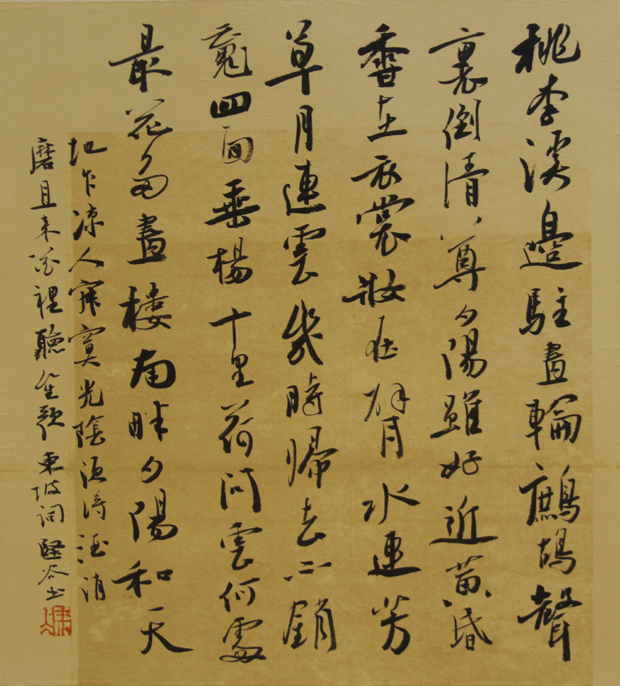 桃李溪邊駐畫輪鷓鴣聲
裏倒清尊夕陽雖好近黃昏
香在衣裳妝在臂水連芳
草月連雲幾時歸去不銷
魂四面垂楊十里荷問雲何處
最花多畫樓南畔夕陽和天
地乍涼人寂寞光陰須得酒消
磨且來花裡聽笙歌東坡詞